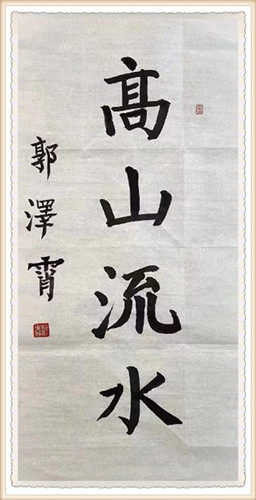 髙山流水
郭澤霄